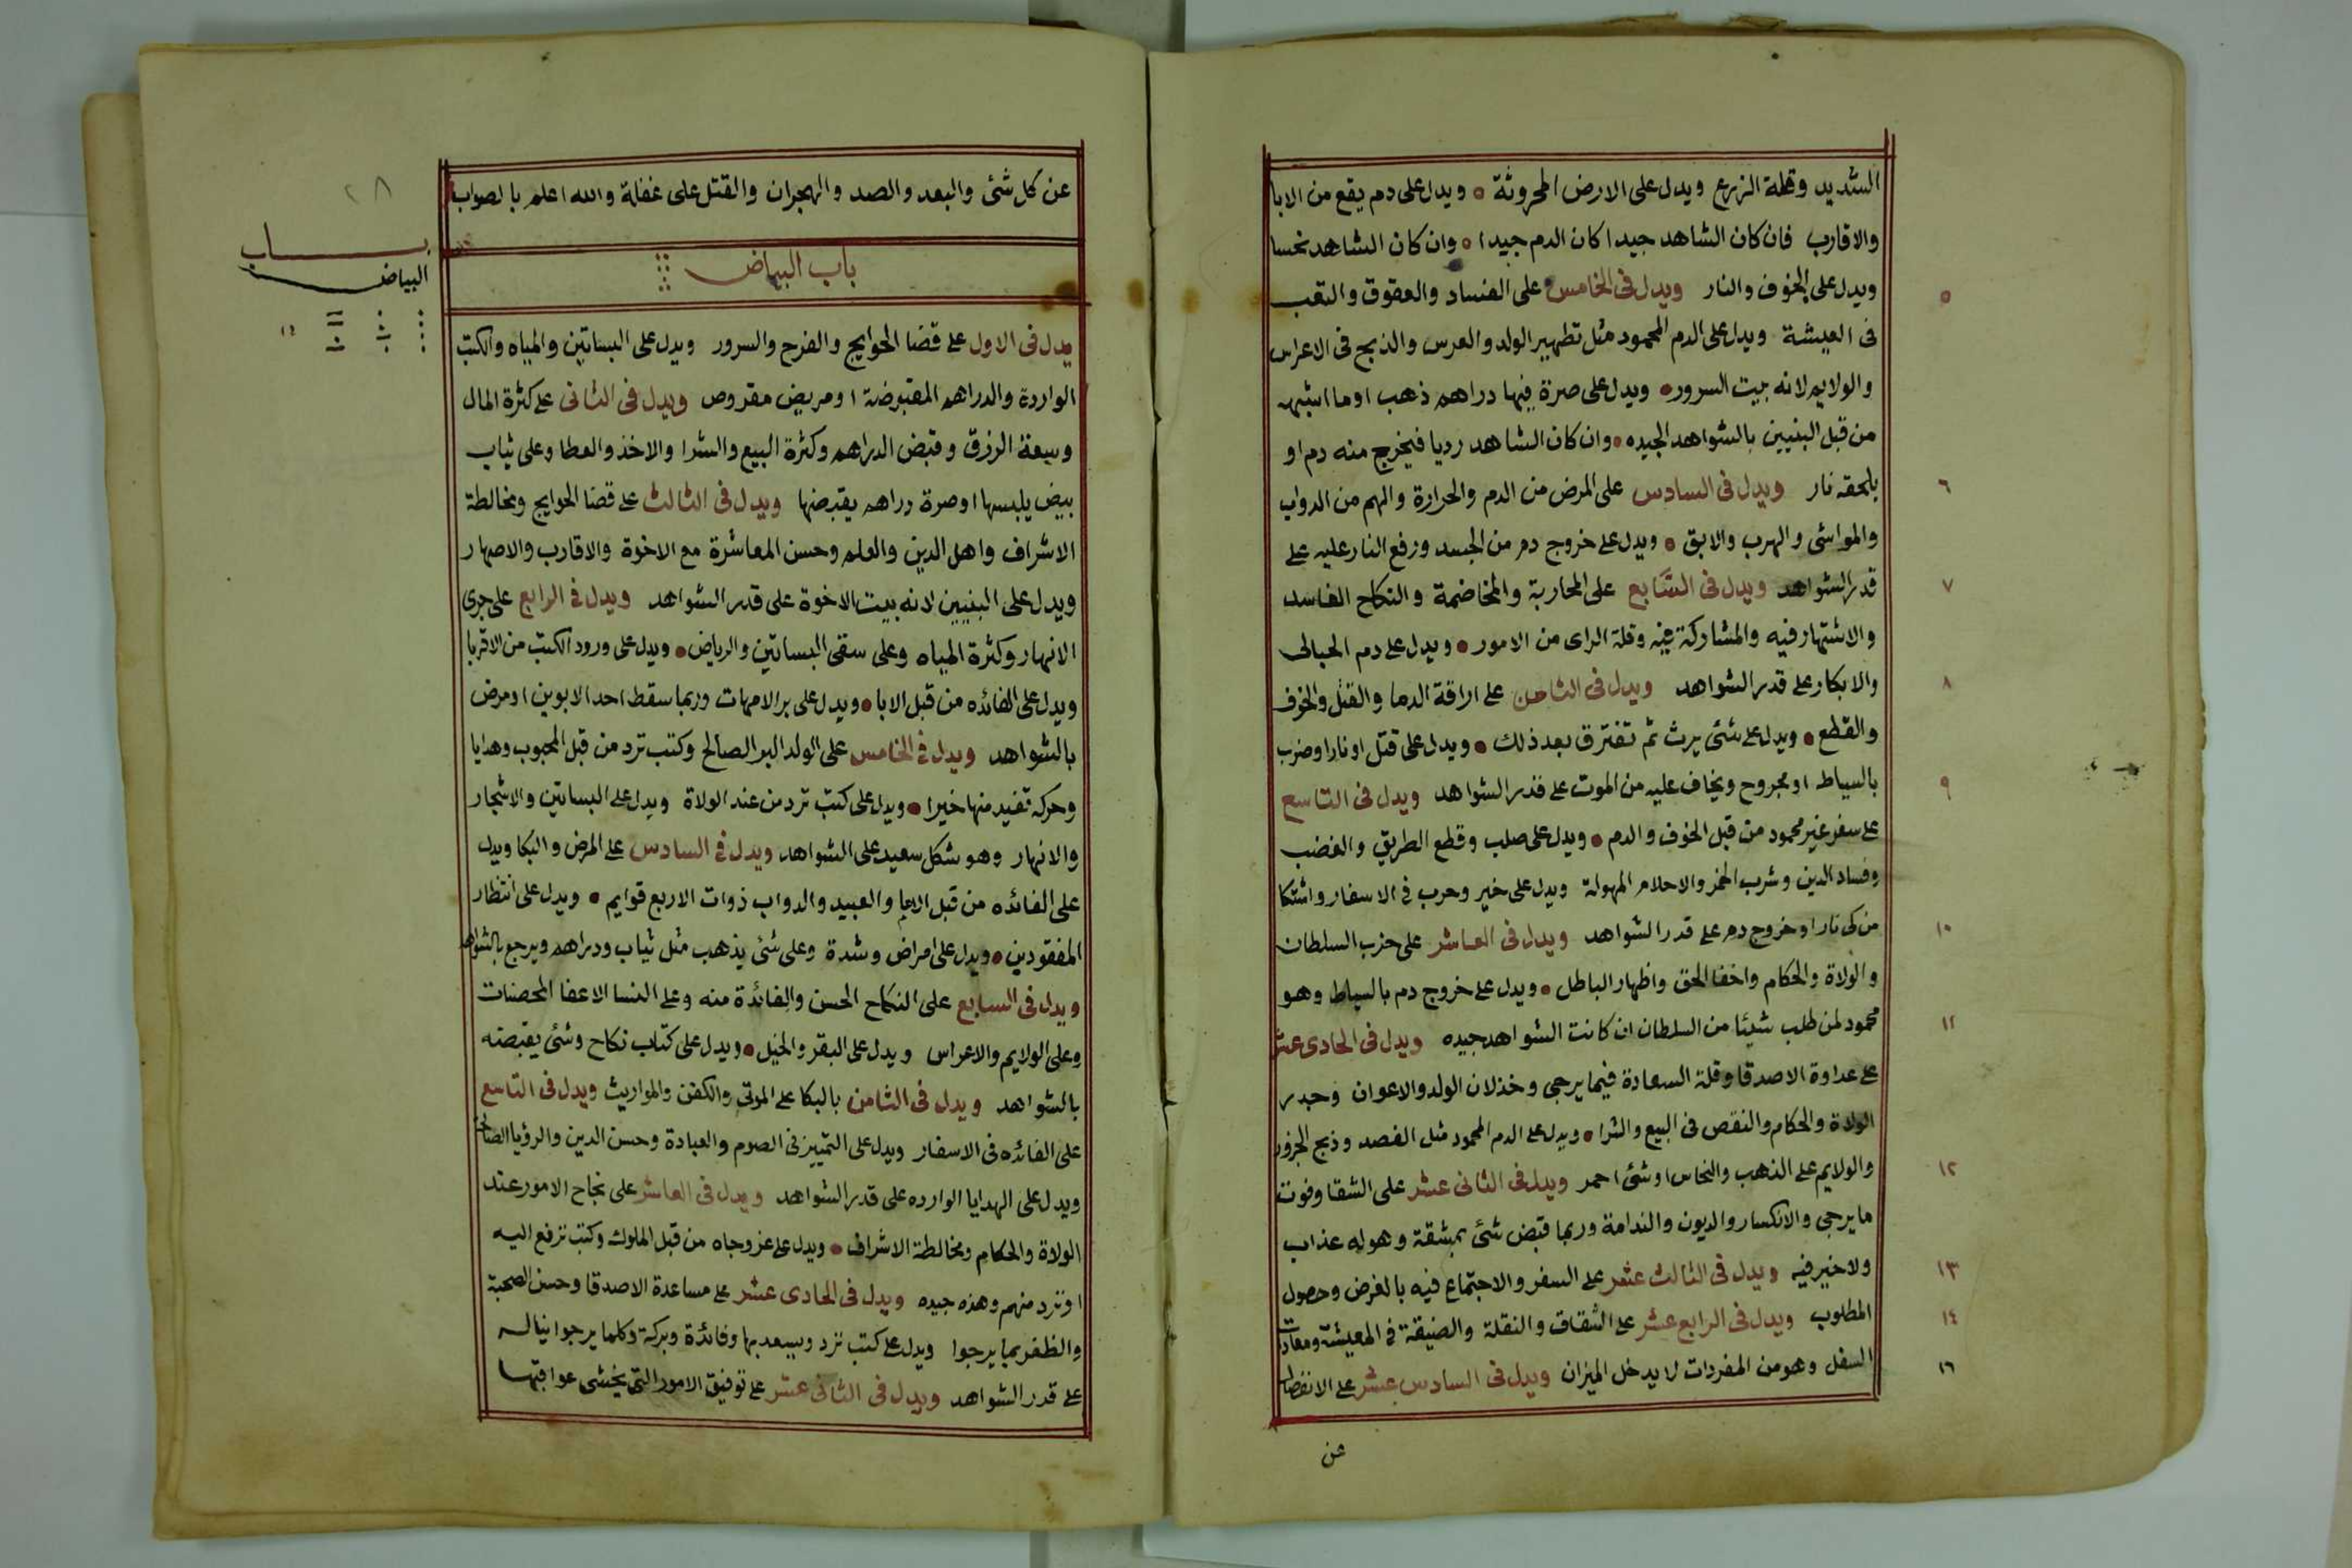 الشديد وقلة الزرع ويدل على الارض المحروثة ويدل على دم يقع من الابا
والاقارب فان كان الشاهد جيدا كان الدم جيدا وان كان الشاهد نحسا
ويدل على الخوف والنار ويدل فى الخامس على الفساد والعقوق والتعب
٥
فى العيشة ويدل على الدم المحمود مثل تطهير الولد والعرس والذبح فى الاعراس
والولايم لانه بيت السرور ويدل على صرة فيها دراهم ذهب او ما اشبهه
من قبل البنيين بالشواهد الجيده وان كان الشاهد رديا فيخرج منه دم او
يلحقه نار ويدل فى السادس على المرض من الدم والحرارة والهم من الدواب
٦
والمواشى والهرب والابق ويدل على خروج دم من الجسد ورفع النار عليه على
قدر الشواهد ويدل فى السابع على المحاربة والمخاضمة والنكاح الفاسد
٧
والاشتهار فيه والمشاركة فيه وقلة الراى من الامور ويدل على دم الحبالى
والابكار على قدر الشواهد ويدل فى الثامن على اراقة الدما والقتل والخوف
٨
والقطع ويدل على شئ يرث ثم تفترق بعد ذلك ويدل على قتل او نار او ضرب
بالسياط او مجروح ويخاف عليه من الموت على قدر الشواهد ويدل فى التاسع
٩
على سفر غير محمود من قبل الخوف والدم ويدل على صلب وقطع الطريق والغضب
وفساد الدين وشرب الخمر والاحلام المهولة ويدل على خير وحرب فى الاسفار واشتكا
من كى نار او خروج دم على قدر الشواهد ويدل فى العاشر على حزب السلطان
١٠
والولاة والحكام واخفا الحق واظهار الباطل ويدل على خروج دم بالسياط وهو
محمود لمن طلب شيئا من السلطان ان كانت الشواهد جيده ويدل فى الحادى عشر
١١
على عداوة الاصدقا وقلة السعادة فيما يرجى وخذلان الولد والاعوان
الولاة والحكام والنقص فى البيع والشرا ويدل على الدم المحمود مثل الفصد وذبح الجزور
والولايم على الذهب والنحاس او شئ احمر ويدل فى الثانى عشر على الشقا وفوت
١٢
ما يرجى والانكسار والديون والندامة وربما قبض شئ بمشقة وهوله عذاب
ولا خير فيه ويدل فى الثالث عشر على السفر والاجتماع فيه بالغرض وحصول
١٣
المطلوب ويدل فى الرابع عشر على الشقاق والنقلة والضيقة فى المعيشة
١٤
السفل وهو من المفردات لا يدخل الميزان ويدل فى السادس عشر على الانفصال
١٦
عن
٢٨
عن كل شئ والبعد والصد والهجران والقتل على غفلة والله اعلم بالصواب
باب البياض
بـاب
البياض
يدل فى الاول على قضا الحوايج والفرح والسرور ويدل على البساتين والمياه والكتب
الواردة والدراهم المقبوضة او مريض مقروص ويدل فى الثانى على كثرة المال
وسعة الرزق وقبض الدراهم وكثرة البيع والشرا والاخذ والعطا وعلى ثياب
بيض يلبسها او صرة دراهم يقبضها ويدل فى الثالث على قضا الحوايج ومخالطة
الاشراف واهل الدين والعلم وحسن المعاشرة مع الاخوة والاقارب والاصهار
ويدل على البنيين لانه بيت الاخوة على قدر الشواهد ويدل فى الرابع على جرى
الانهار وكثرة المياه وعلى سقى البساتين والرياض ويدل على ورود الكتب من الاقربا
ويدل على الفائده من قبل الابا ويدل على بر الامهات وربما سقط احد الابوين او مرض
بالشواهد ويدل فى الخامس على الولد البر الصالح وكتب ترد من قبل المحبوب وهدايا
وحركه تفيد منها خيرا ويدل على كتب ترد من عند الولاة ويدل على البساتين والاشجار
والانهار وهو شكل سعيد على الشواهد ويدل فى السادس على المرض والبكا ويدل
على الفائده من قبل الاما والعبيد والدواب ذوات الاربع قوايم ويدل على انتظار
المفقودين ويدل على امراض وشدة وعلى شئ يذهب مثل ثياب ودراهم ويرجع بالشواهد
ويدل فى السابع على النكاح الحسن والفائدة منه وعلى النسا الاعفا المحصنات
وعلى الولايم والاعراس ويدل على البقر والخيل ويدل على كتاب نكاح وشئ يقبضه
بالشواهد ويدل فى الثامن بالبكا على الموتى والكفن والمواريث ويدل فى التاسع
على الفائده فى الاسفار ويدل على التمييز فى الصوم والعبادة وحسن الدين والرؤيا الصالحة
ويدل على الهدايا الوارده على قدر الشواهد ويدل فى العاشر على نجاح الامور عند
الولاة والحكام ومخالطة الاشراف ويدل على عز وجاه من قبل الملوك وكتب ترفع اليه
او ترد منهم وهذه جيده ويدل فى الحادى عشر على مساعدة الاصدقا وحسن الصحبة
والظفر بما يرجوا ويدل على كتب ترد ويسعد بها وفائدة وبركة وكلما يرجوا يناله
على قدر الشواهد ويدل فى الثانى عشر على توفيق الامور التى يخشى عواقبها